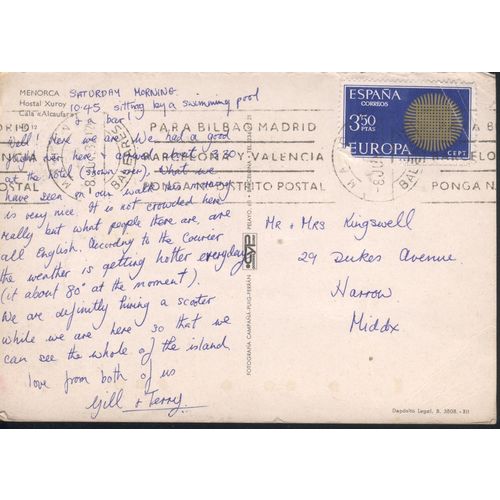 MENORCA
Hostal Xuroy
Cala «Alcaufar»
SATURDAY MORNING
10.45 sitting by a swimming pool
& a bar!
Well! Here we are! We had a good
over here & arrived about 8.30
at the hotel (shown over). What we
have seen on our walk this morning
is very nice. It is not crowded here
really but what people there are, are
all English. According to the Courier
the weather is getting hotter everyday
(it about 80° at the moment).
We are definitly hiring a scooter
while we are here so that we
can see the whole of the island.
love from both of us
Gill & Terry.
PARA BILBAO MADRID
BARCELONA VALENCIA
PONGA DISTRITO POSTAL
PONGA
BALEARES
ESPAÑA
CORREOS
3'50
PTAS
EUROPA
CEPT
Mr & Mrs Kingswell
29 Dukes Avenue
Harrow
Middx.
FOTOGRAFIA CAMPAÑA-PUIG-FERRAN
Depósito Legal, B. 3808.-XII